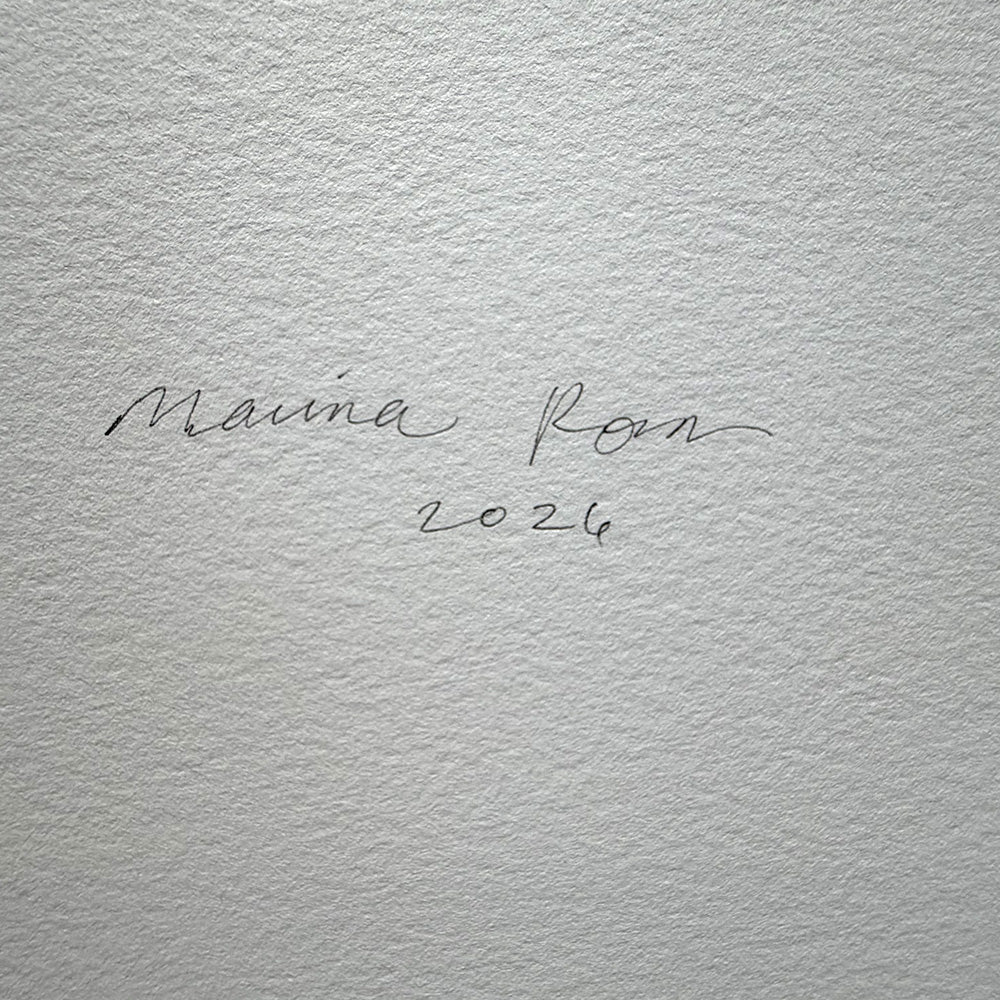 Marina Ron
2026